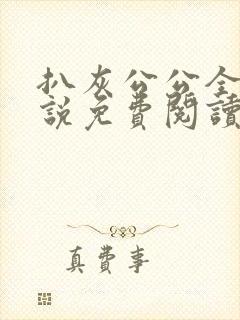 扒灰公公全
說免費閱讀
真費事